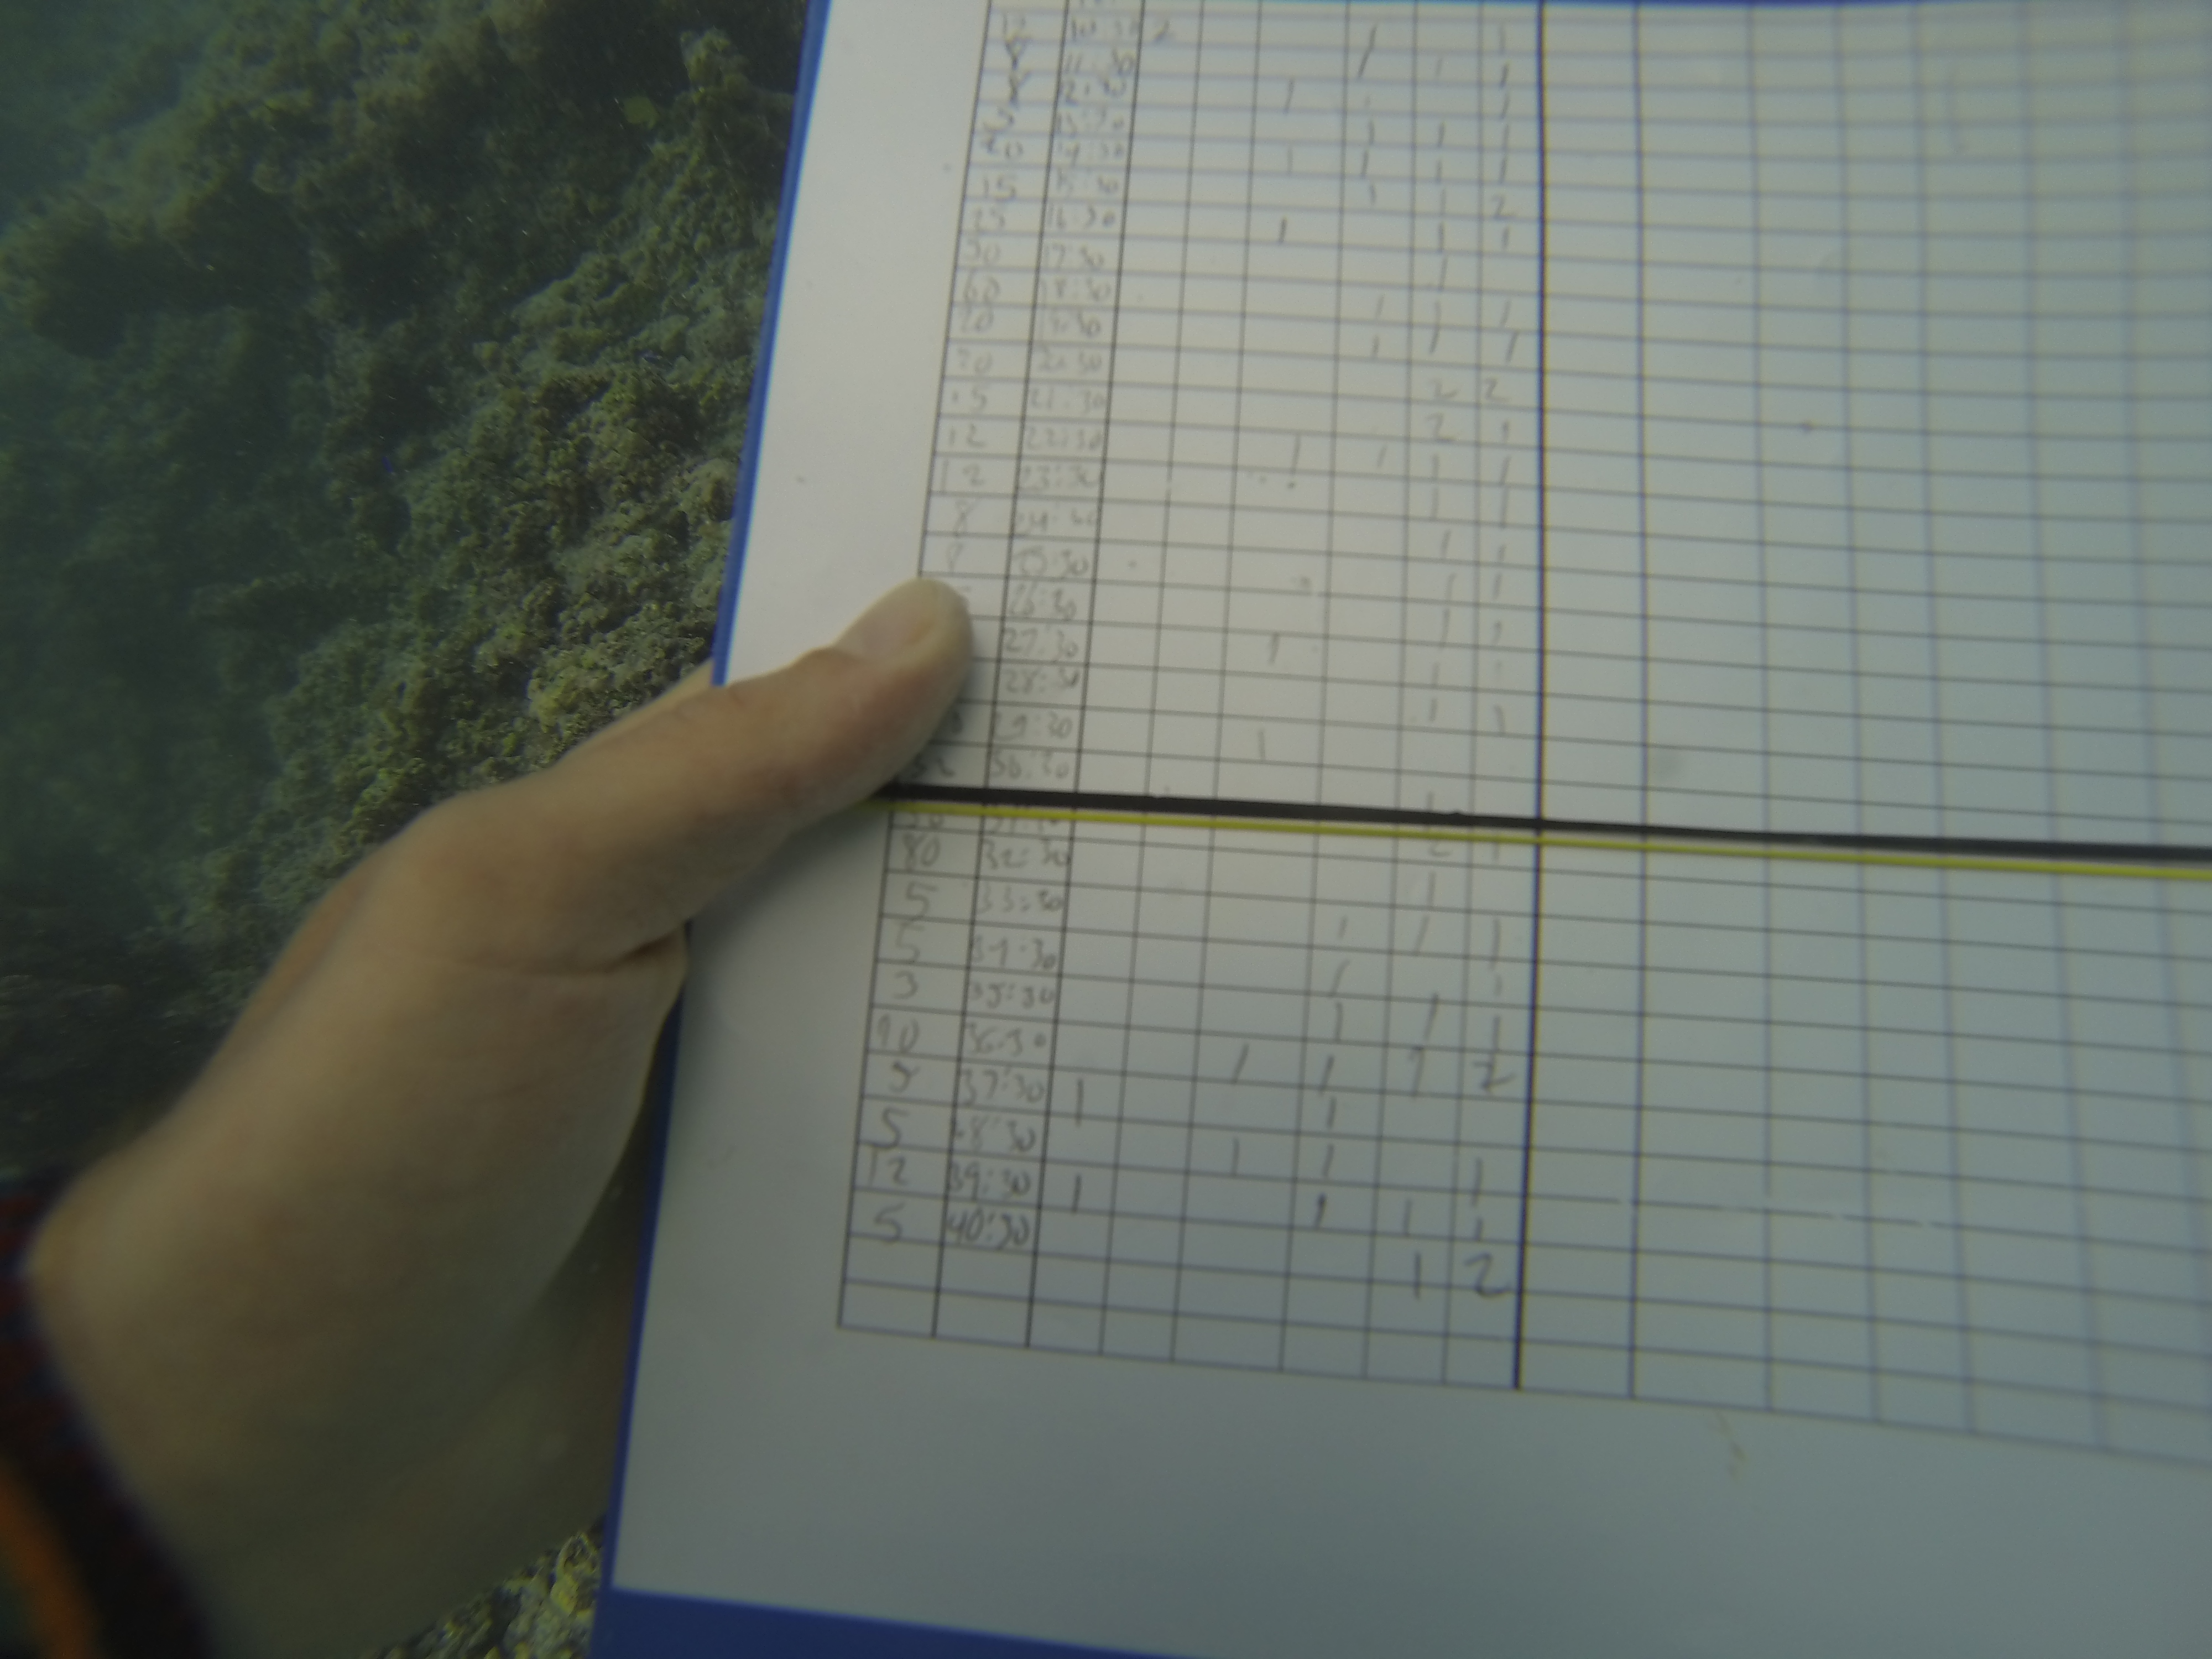 12 10:30 2 1 1
8 11:30 1 1 1
8 12:30 1 1 1
13:30 1 1 1
14:30 1 1 1 1
15 15:30 1 1 2
25 16:30 1 1 1
30 17:30 1
60 18:30 1 1 1
20 19:30 1 1 1
20 20:30 2 2
15 21:30 2 1
12 22:30 1 1 1 1
12 23:30 1 1
8 24:30 1 1
25:30 1 1
26:30 1 1
27:30 1 1 1
28:30 1 1
29:30 1
30:30
80 32:30 1
5 33:30 1 1 1
5 34:30 1 1
3 35:30 1 1 1
90 36:30 1 1 1 2
5 37:30 1 1
5 38:30 1 1 1
12 39:30 1 1 1 1
5 40:30 1 2